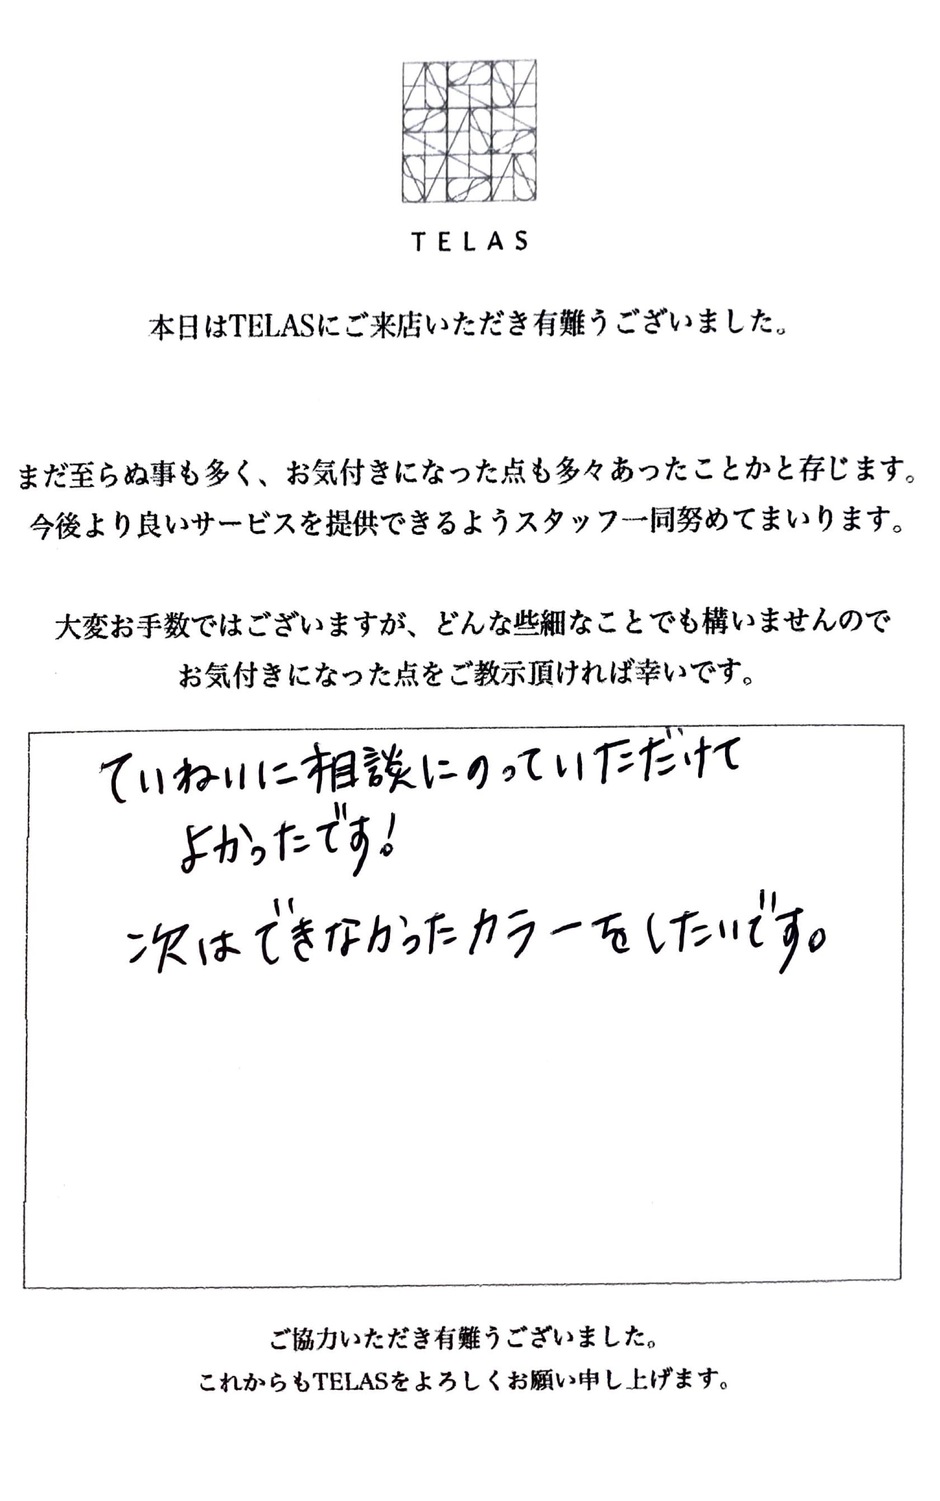 TELAS
本日はTELASにご来店いただき有難うございました。
まだ至らぬ事も多く、お気付きになった点も多々あったことかと存じます。
今後より良いサービスを提供できるようスタッフ一同努めてまいります。
大変お手数ではございますが、どんな些細なことでも構いませんので
お気付きになった点をご教示頂ければ幸いです。
ていねいに相談にのっていただけて
よかったです!
次はできなかったカラーをしたいです。
ご協力いただき有難うございました。
これからもTELASをよろしくお願い申し上げます。